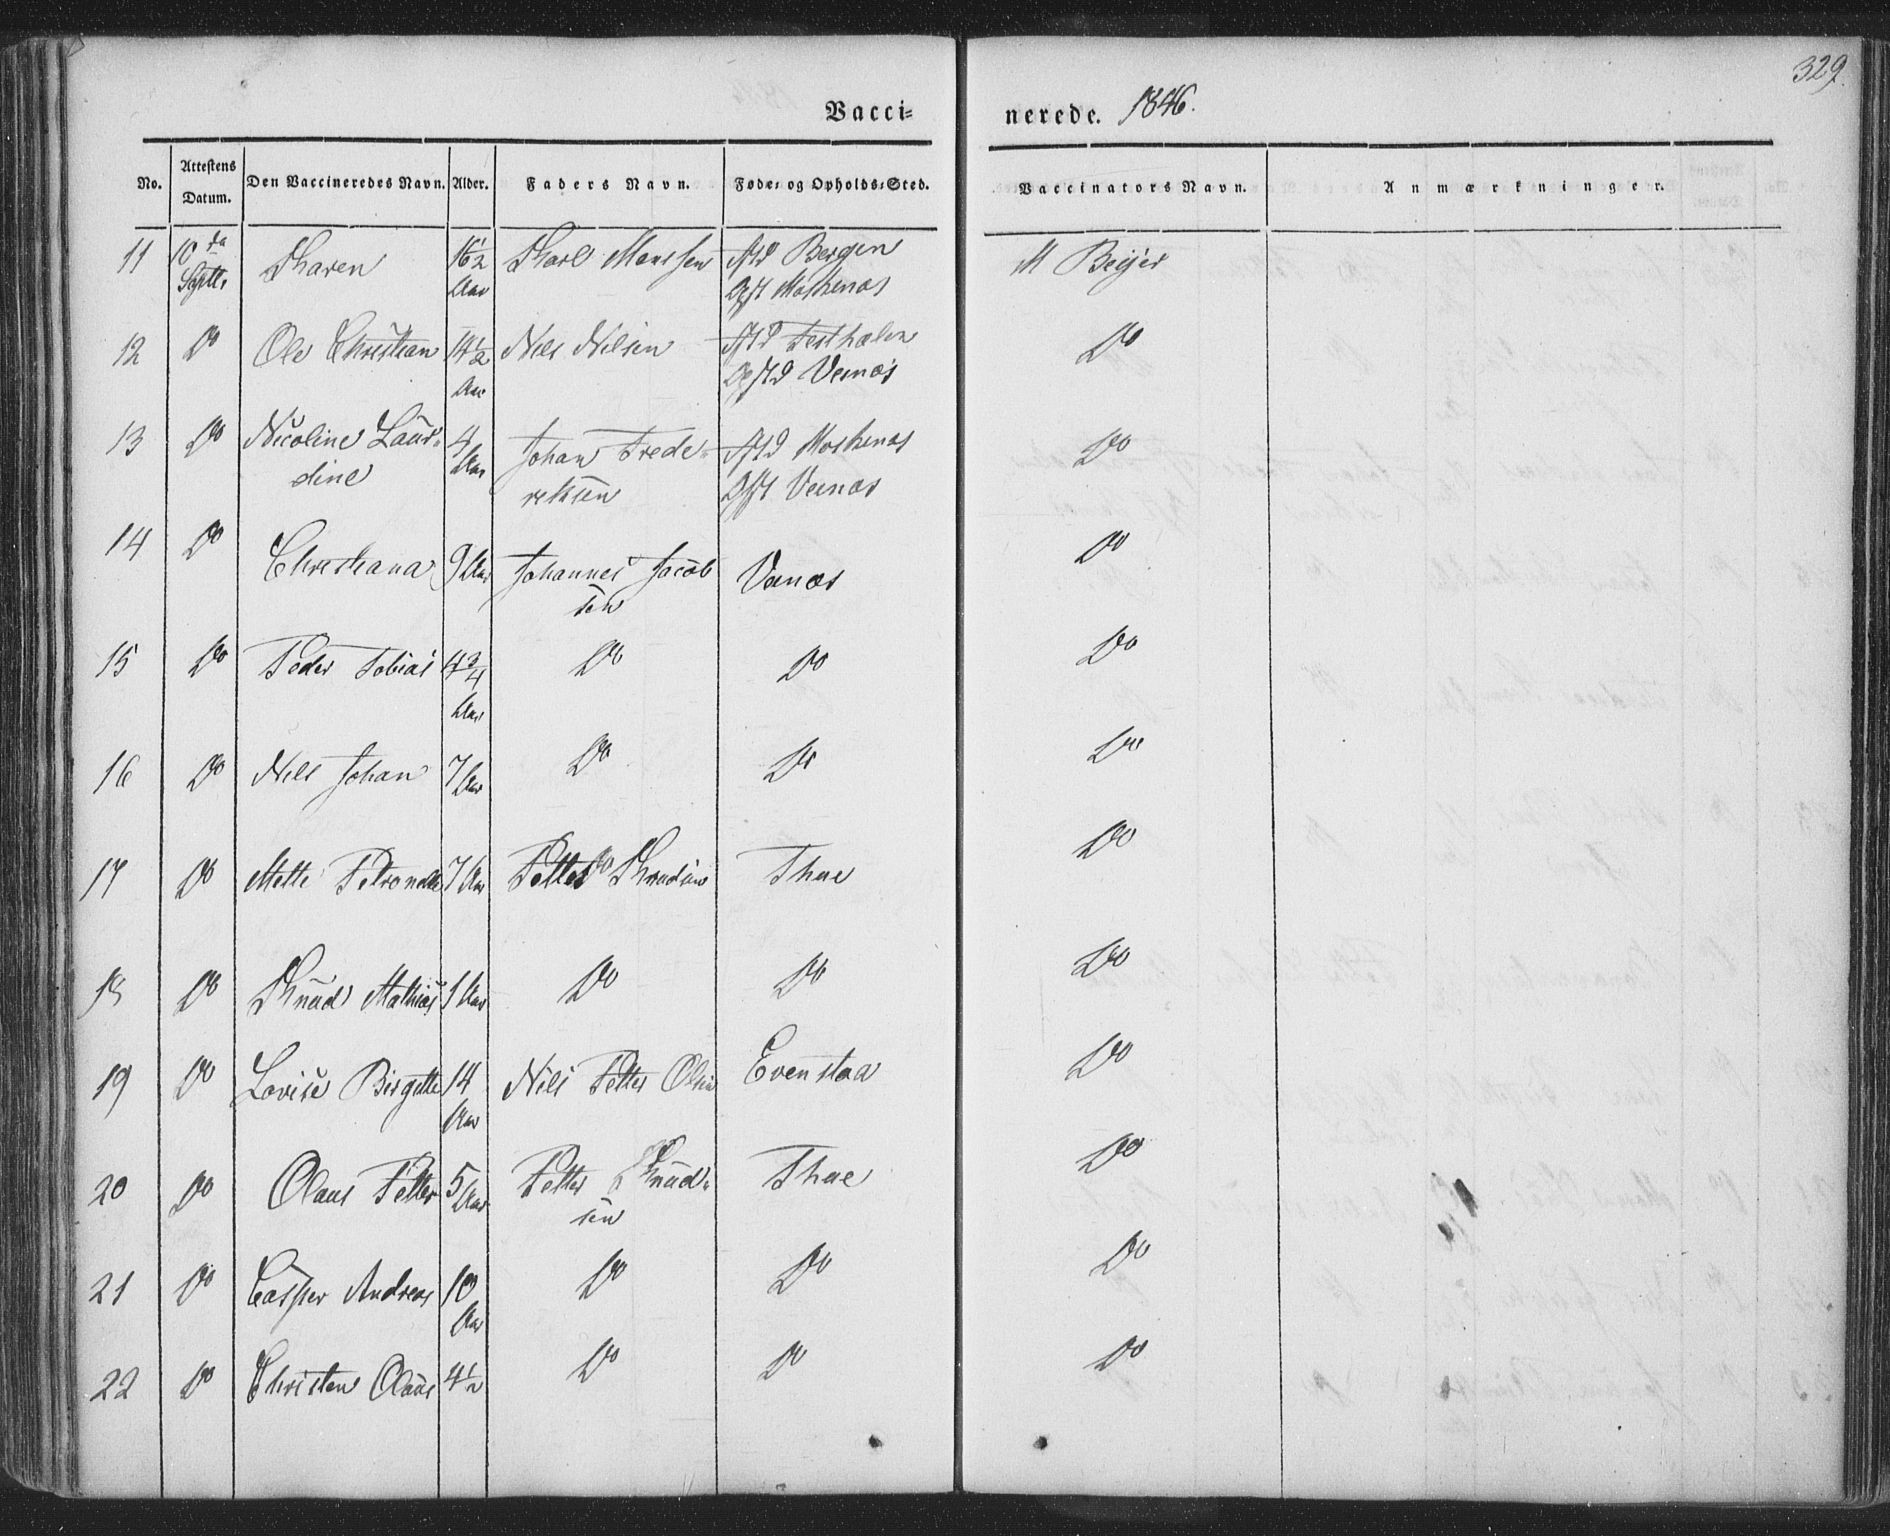 329.
Vacci= nerede. 1846.
No. Attestens Datum. Den Vaccineredes Navn. Alder. Faders Navn. Føde= og Opholds=Sted. Vaccinators Navn. Anmærkninger.
11 10 da Septb. Karen 16½ Aar Karl Monssen Fstd Bergen M Beyer
Opst Moskenæs
12 Do Ole Christian 14½ Aar Nils Nilsen Fstd Do
Opstd Værnæs
13 Do Nicoline Laur= 4 Aar Johan Frede= Fstd Moskenæs Do
dine reksen Opst Værnæs
14 Do Christiana 9 Aar Johannes Jacob Værnæs Do
sen
15 Do Peder Tobias 4¾ Aar Do Do Do
16 Do Nils Johan 7 Aar Do Do Do
17 Do Mette Petronelle 7 Aar Petter Knudsen Thue Do
18 Do Knud Mathias 1 Aar Do Do Do
19 Do Lovise Birgitte 14 Aar Nils Petter Olsen Evenstad Do
20 Do Olaus Petter 5 Aar Petter Knud= Thue Do
sen
21 Do Casper Andreas 10 Aar Do Do Do
22 Do Christen Olaus 4½ Do Do Do